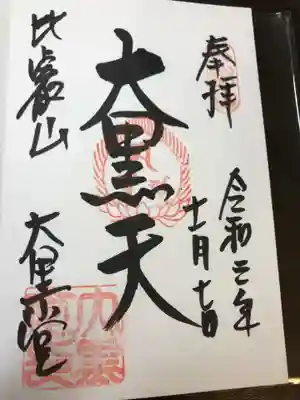 奉拝
令和元年
十一月十七日
大黒天
比叡山
大黒堂